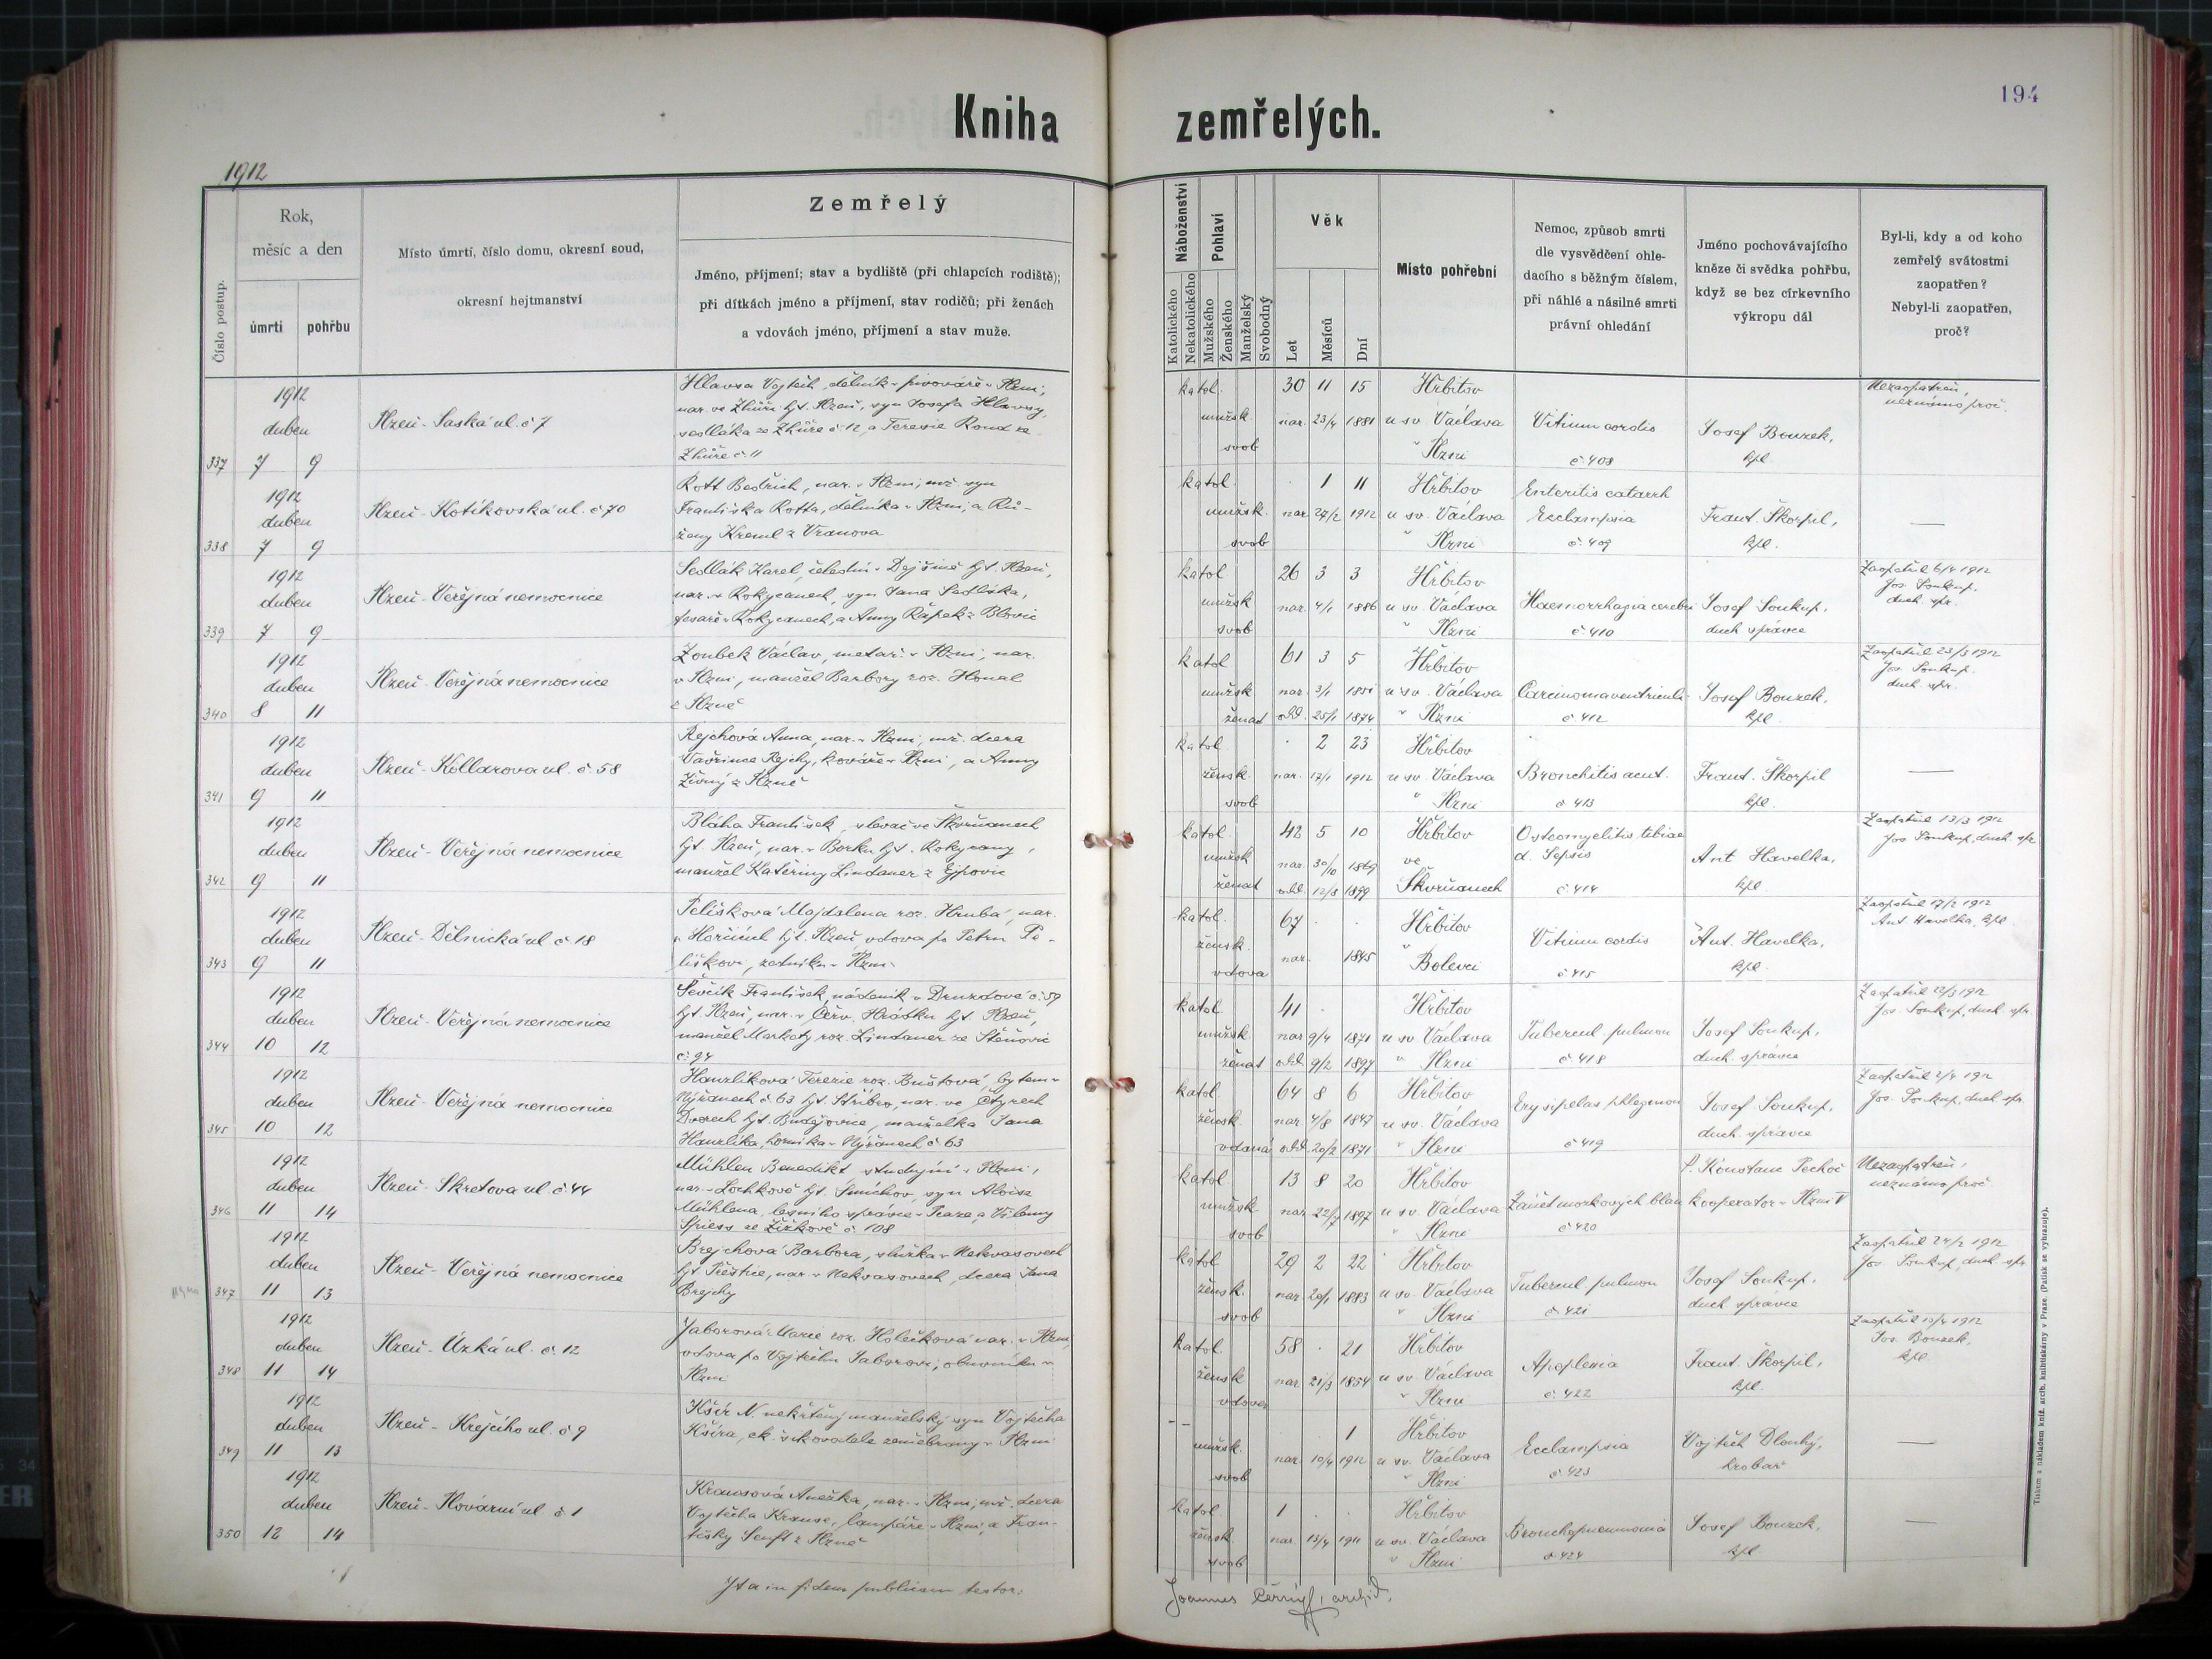 194
Kniha zemřelých.
1912
Číslo postup.
Rok,
měsíc a den
úmrtí
pohřbu
Místo úmrtí, číslo domu, okresní soud,
okresní hejtmanství
Zemřelý
Jméno, příjmení; stav a bydliště (při chlapcích rodiště);
při dítkách jméno a příjmení, stav rodičů; při ženách
a vdovách jméno, příjmení a stav muže.
Náboženství
Katolického
Nekatolického
Pohlaví
Mužského
Ženského
Manželský
Svobodný
Věk
Let
Měsíců
Dní
Místo pohřební
Nemoc, způsob smrti
dle vysvědčení ohle-
dacího s běžným číslem,
při náhlé a násilné smrti
právní ohledání
Jméno pochovávajícího
kněze či svědka pohřbu,
když se bez církevního
výkropu dál
Byl-li, kdy a od koho
zemřelý svátostmi
zaopatřen?
Nebyl-li zaopatřen,
proč?
1912
duben
337 7 9
Plzeň - Saská ul. č 7
Hlavsa Vojtěch, dělník v pivováře v Plzni,
nar. ve Zhůři hjt. Plzeň, syn Josefa Hlavsy,
sedláka ze Zhůře č 12, a Terezie Roud ze
Zhůře č. 11
katol. 30 11 15
mužsk. nar. 23/4 1881
svob
Hřbitov
u sv. Václava
v Plzni
Vitium cordis
č. 408
Josef Bouzek,
kpl.
Nezaopatřen,
neznámo proč.
1912
duben
338 7 9
Plzeň - Kotíkovská ul. č 70
Rott Bedřich, nar. v Plzni, mž. syn
Františka Rotta, dělníka v Plzni, a Rů-
ženy Kreml z Vranova
katol. . 1 11
mužsk. nar 27/2 1912
svob
Hřbitov
u sv. Václava
v Plzni
Enteritis catarrh
Ecclampsia
č. 409
Frant. Škorpil,
kpl.
—
1912
duben
339 7 9
Plzeň - Veřejná nemocnice
Sedlák Karel, čeledín v Dejšině hjt. Plzeň,
nar. v Rokycanech, syn Jana Sedláka,
tesaře v Rokycanech, a Anny Řápek z Blovic
katol 26 3 3
mužsk nar. 4/1 1886
svob
Hřbitov
u sv. Václava
v Plzni
Haemorrhagia cerebri
č. 410
Josef Soukup,
duch správce
Zaopatřil 6/4 1912
Jos. Soukup,
duch. spr.
1912
duben
340 8 11
Plzeň - Veřejná nemocnice
Zoubek Václav, metař v Plzni, nar.
v Plzni, manžel Barbory roz. Honal
z Plzně
katol 61 3 5
mužsk nar. 3/1 1851
ženat odd. 25/1 1874
Hřbitov
u sv. Václava
v Plzni
Carcinoma ventriculi
č 412
Josef Bouzek,
kpl.
Zaopatřil 23/3 1912
Jos. Soukup.
duch. spr.
1912
duben
341 9 11
Plzeň - Kollarova ul. č. 58
Rejchová Anna, nar. v Plzni, mž. dcera
Vavřince Rejchy, kováře v Plzni, a Anny
Živný z Plzně
katol. . 2 23
žensk. nar. 17/1 1912
svob
Hřbitov
u sv. Václava
v Plzni
Bronchitis acut.
č 413
Frant. Škorpil
kpl.
—
1912
duben
342 9 11
Plzeň - Veřejná nemocnice
Bláha František, slevač ve Škvrňanech
hjt. Plzeň, nar. v Borku hjt. Rokycany,
manžel Kateřiny Lindauer z Ejpovic
katol. 42 5 10
mužsk nar. 30/10 1869
ženat odd. 12/8 1899
Hřbitov
ve
Škvrňanech
Osteomyelitis tibiae
d. Sepsis
č. 414
Ant Havelka,
kpl.
Zaopatřil 13/3 1912
Jos Soukup, duch. spr
1912
duben
343 9 11
Plzeň - Dělnická ul č 18
Pelíšková Majdalena roz. Hrubá, nar.
v Hořcině hjt. Plzeň, vdova po Petru Pe-
líškovi, zedníku v Plzni
katol. 67 . .
žensk. nar. 1845
vdova
Hřbitov
v
Bolevci
Vitium cordis
č 415
Ant. Havelka,
kpl.
Zaopatřil 17/2 1912
Ant. Havelka, kpl
1912
duben
344 10 12
Plzeň - Veřejná nemocnice
Ševčík František, nádeník v Druzdově č. 59
hjt. Plzeň, nar. v Červ. Hrádku hjt. Plzeň,
manžel Markety roz. Lindauer ze Štěnovic
č. 94
katol 41 .
mužsk. nar 9/4 1871
ženat odd. 9/2 1897
Hřbitov
u sv. Václava
v Plzni
Tubercul pulmon
č 418
Josef Soukup,
duch. správce
Zaopatřil 22/3 1912
Jos. Soukup, duch. spr.
1912
duben
345 10 12
Plzeň - Veřejná nemocnice
Hanzlíková Terezie roz. Buštová, bytem v
Nýřanech č 63 hjt. Stříbro, nar. ve Čtyřech
Dvorech hjt. Budějovice, manželka Jana
Hanzlíka, horníka v Nýřanech č 63
katol. 64 8 6
žensk nar 4/8 1847
vdaná odd. 20/2 1871
Hřbitov
u sv. Václava
v Plzni
Erysipelas phlegmon
č 419
Josef Soukup,
duch. správce
Zaopatřil 2/4 1912
Jos. Soukup, duch. spr.
1912
duben
346 11 14
Plzeň - Skretova ul. č 44
Mühlen Benedikt studující v Plzni,
nar. v Lochkově hjt. Smíchov, syn Aloise
Mühlena, lesního správce v Praze, a Vilemy
Spiess ze Žižkově č 108
katol 13 8 20
mužsk. nar 22/7 1897
svob
Hřbitov
u sv. Václava
v Plzni
Zánět morkových blan
č 420
P. Konstanc Pechoč
kooperator v Plzni V
Nezaopatřen,
neznámo proč
1912
duben
347 11 13
Plzeň - Veřejná nemocnice
Brejchová Barbora, služka v Nekvasovech
hjt Přeštice, nar. v Nekvasovech, dcera Jana
Brejchy
katol 29 2 22
žensk. nar. 20/1 1883
svob
Hřbitov
u sv. Václava
v Plzni
Tubercul pulmon
č. 421
Josef Soukup.
duch správce
Zaopatřil 24/2 1912
Jos. Soukup, duch. spr
1912
duben
348 11 14
Plzeň - Úzká ul. č. 12
Jaborová Marie roz. Holečková nar. v Plzni,
vdova po Vojtěchu Jaborovi, obuvníku v
Plzni
katol 58 . 21
žensk nar 21/3 1854
vdova
Hřbitov
u sv. Václava
v Plzni
Apoplexia
č. 422
Frant. Škorpil,
kpl.
Zaopatřil 10/4 1912
Jos. Bouzek,
kpl
1912
duben
349 11 13
Plzeň - Krejčího ul. č 9
Kšír N. nekřtěný manželský syn Vojtěcha
Kšíra, ck. šikovatele zeměbrany v Plzni
- - . . 1
mužsk. nar. 10/4 1912
svob
Hřbitov
u sv. Václava
v Plzni
Ecclampsia
č 423
Vojtěch Dlouhý,
hrobař
—
1912
duben
350 12 14
Plzeň - Plovární ul č 1
Krausová Anežka, nar. v Plzni, mž. dcera
Vojtěcha Krause, lampáře v Plzni, a Fran-
tišky Senft z Plzně
katol 1 . .
žensk. nar. 13/4 1911
svob
Hřbitov
u sv. Václava
v Plzni
Bronchopneumonia
č. 424
Josef Bouzek,
kpl
—
Ita in fidem publicam testor:
Joannes Černý, archid.
Tiskem a nákladem kníž. arcib. knihtiskárny v Praze. (Patisk se vyhrazuje).